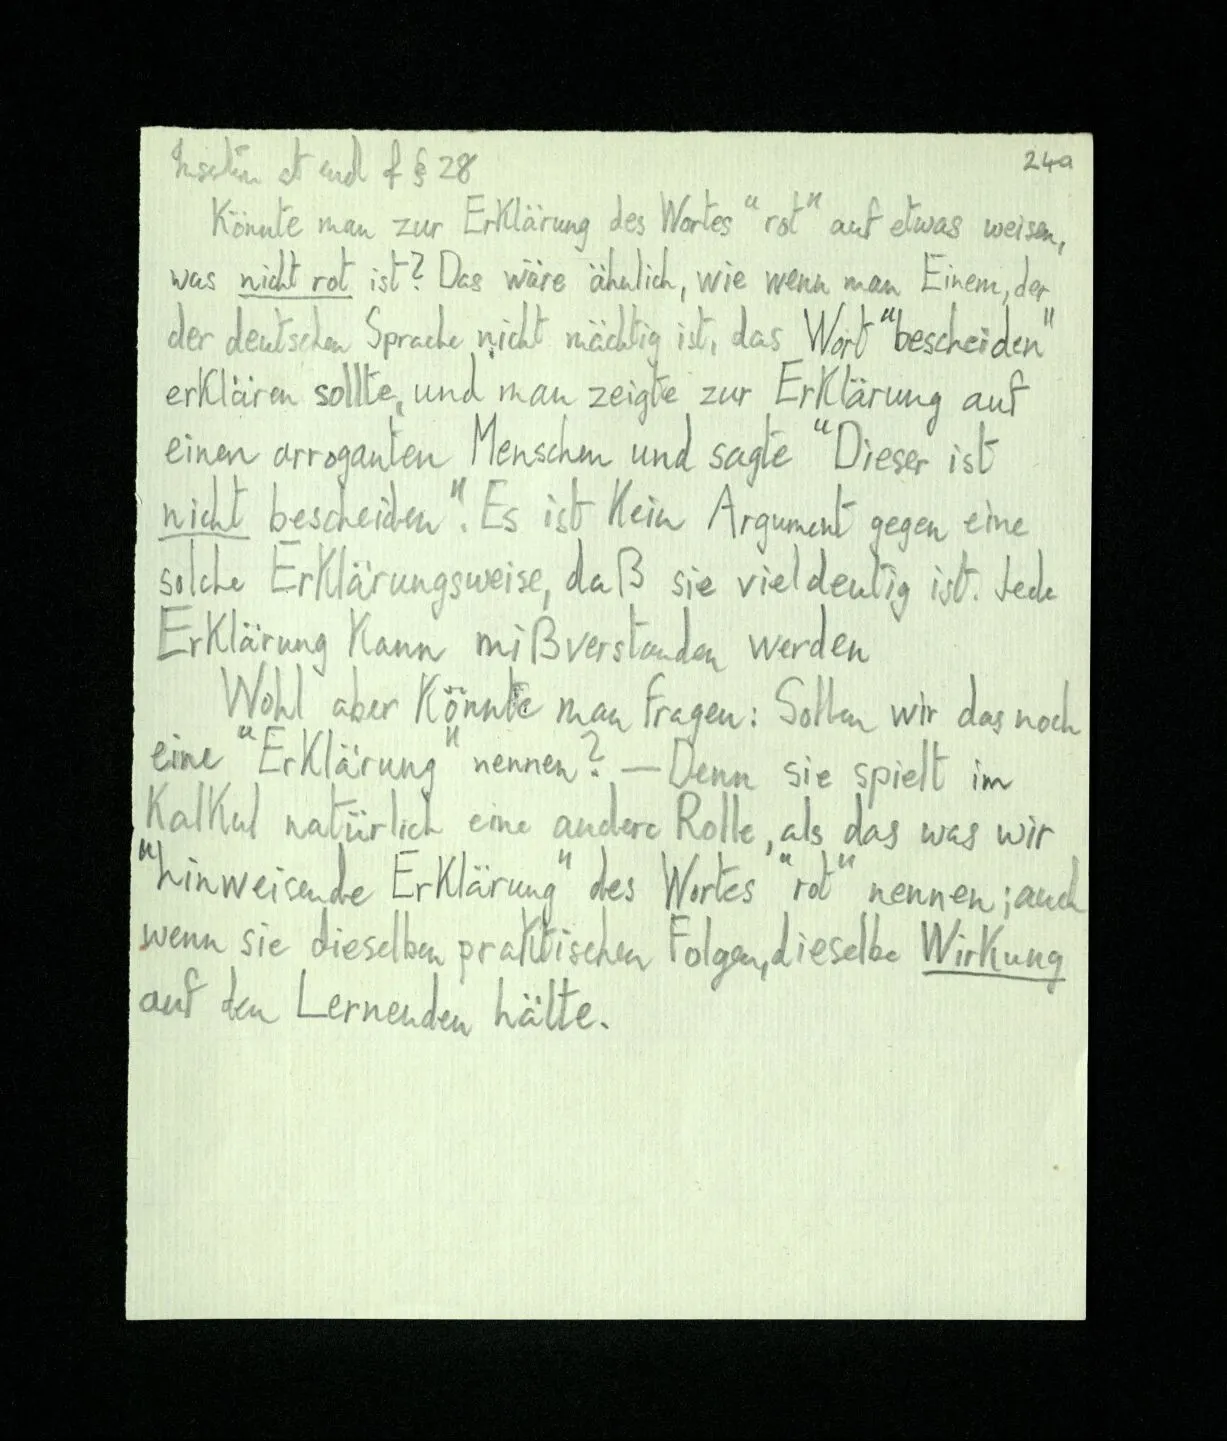 Insertion at end of § 28
24a
Könnte man zur Erklärung des Wortes "rot" auf etwas weisen,
was nicht rot ist? Das wäre ähnlich, wie wenn man Einem, der
der deutschen Sprache nicht mächtig ist, das Wort "bescheiden"
erklären sollte, und man zeigte zur Erklärung auf
einen arroganten Menschen und sagte "Dieser ist
nicht bescheiden". Es ist kein Argument gegen eine
solche Erklärungsweise, daß sie vieldeutig ist. Jede
Erklärung kann mißverstanden werden
Wohl aber könnte man fragen: Sollen wir das noch
eine "Erklärung" nennen? — Denn sie spielt im
Kalkul natürlich eine andere Rolle, als das was wir
"hinweisende Erklärung" des Wortes "rot" nennen; auch
wenn sie dieselben praktischen Folgen, dieselbe Wirkung
auf den Lernenden hätte.